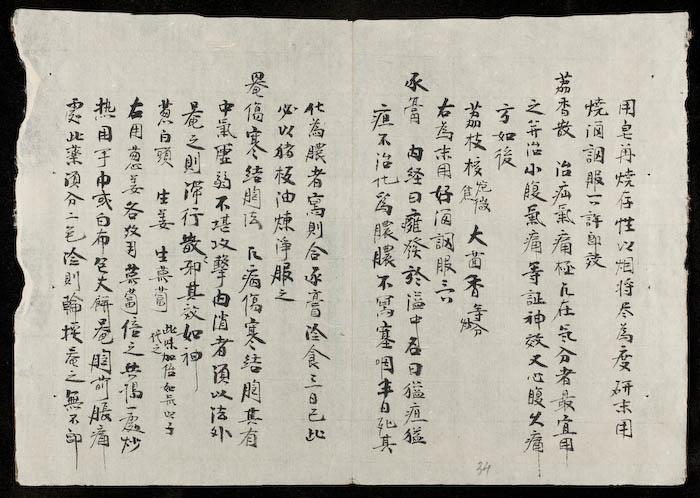 用皂再燒存性以烟将尽為度研末用
燒酒調服一許即效
荔香散 治疝氣痛極凢在气分者最宜用
之并治小腹氣痛等証神效又心腹久痛
方如後
荔枝核炮微焦 大茴香等分炒
右為末用好酒調服二六
豕膏 内経曰癰發於嗌中名曰猛疽猛
疽不治化為膿膿不寫塞咽半日死其
化為膿者寫則合豕膏冷食三日已此
必以猪板油煉淨服之
罨傷寒结胸法 凢病傷寒结胸其有
中氣虛弱不堪攻擊内消者須以法外
罨之則滞行散邪其效如神
葱白頭 生姜 生萊菔此味加倍如無以子代之
右用葱姜各数两萊菔倍之共搗一處炒
热用手巾或白布包大餅罨胸前脹痛
處此藥須分二包冷則輪換罨之無不即
34